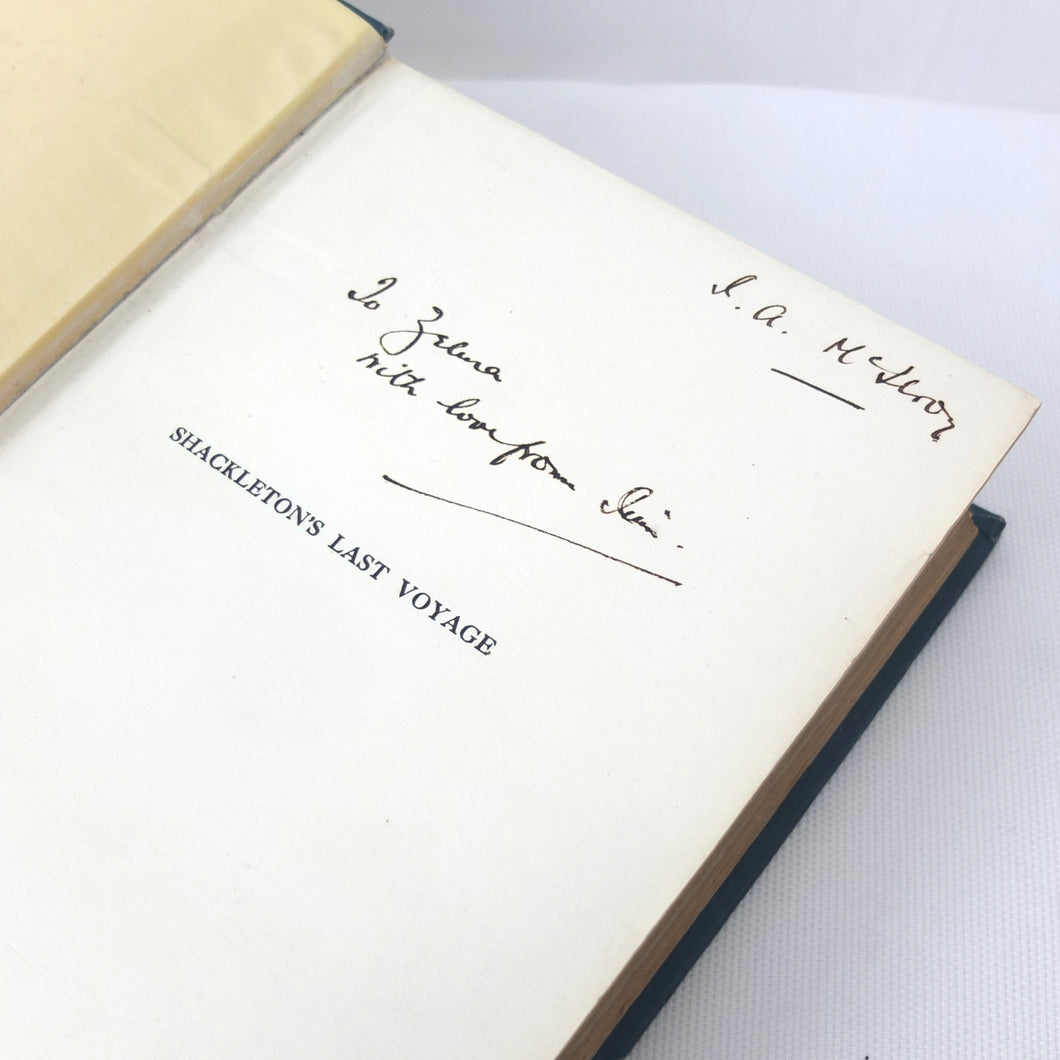 J. A. McIlroy
To Zelma
with love from Jim.
SHACKLETON'S LAST VOYAGE